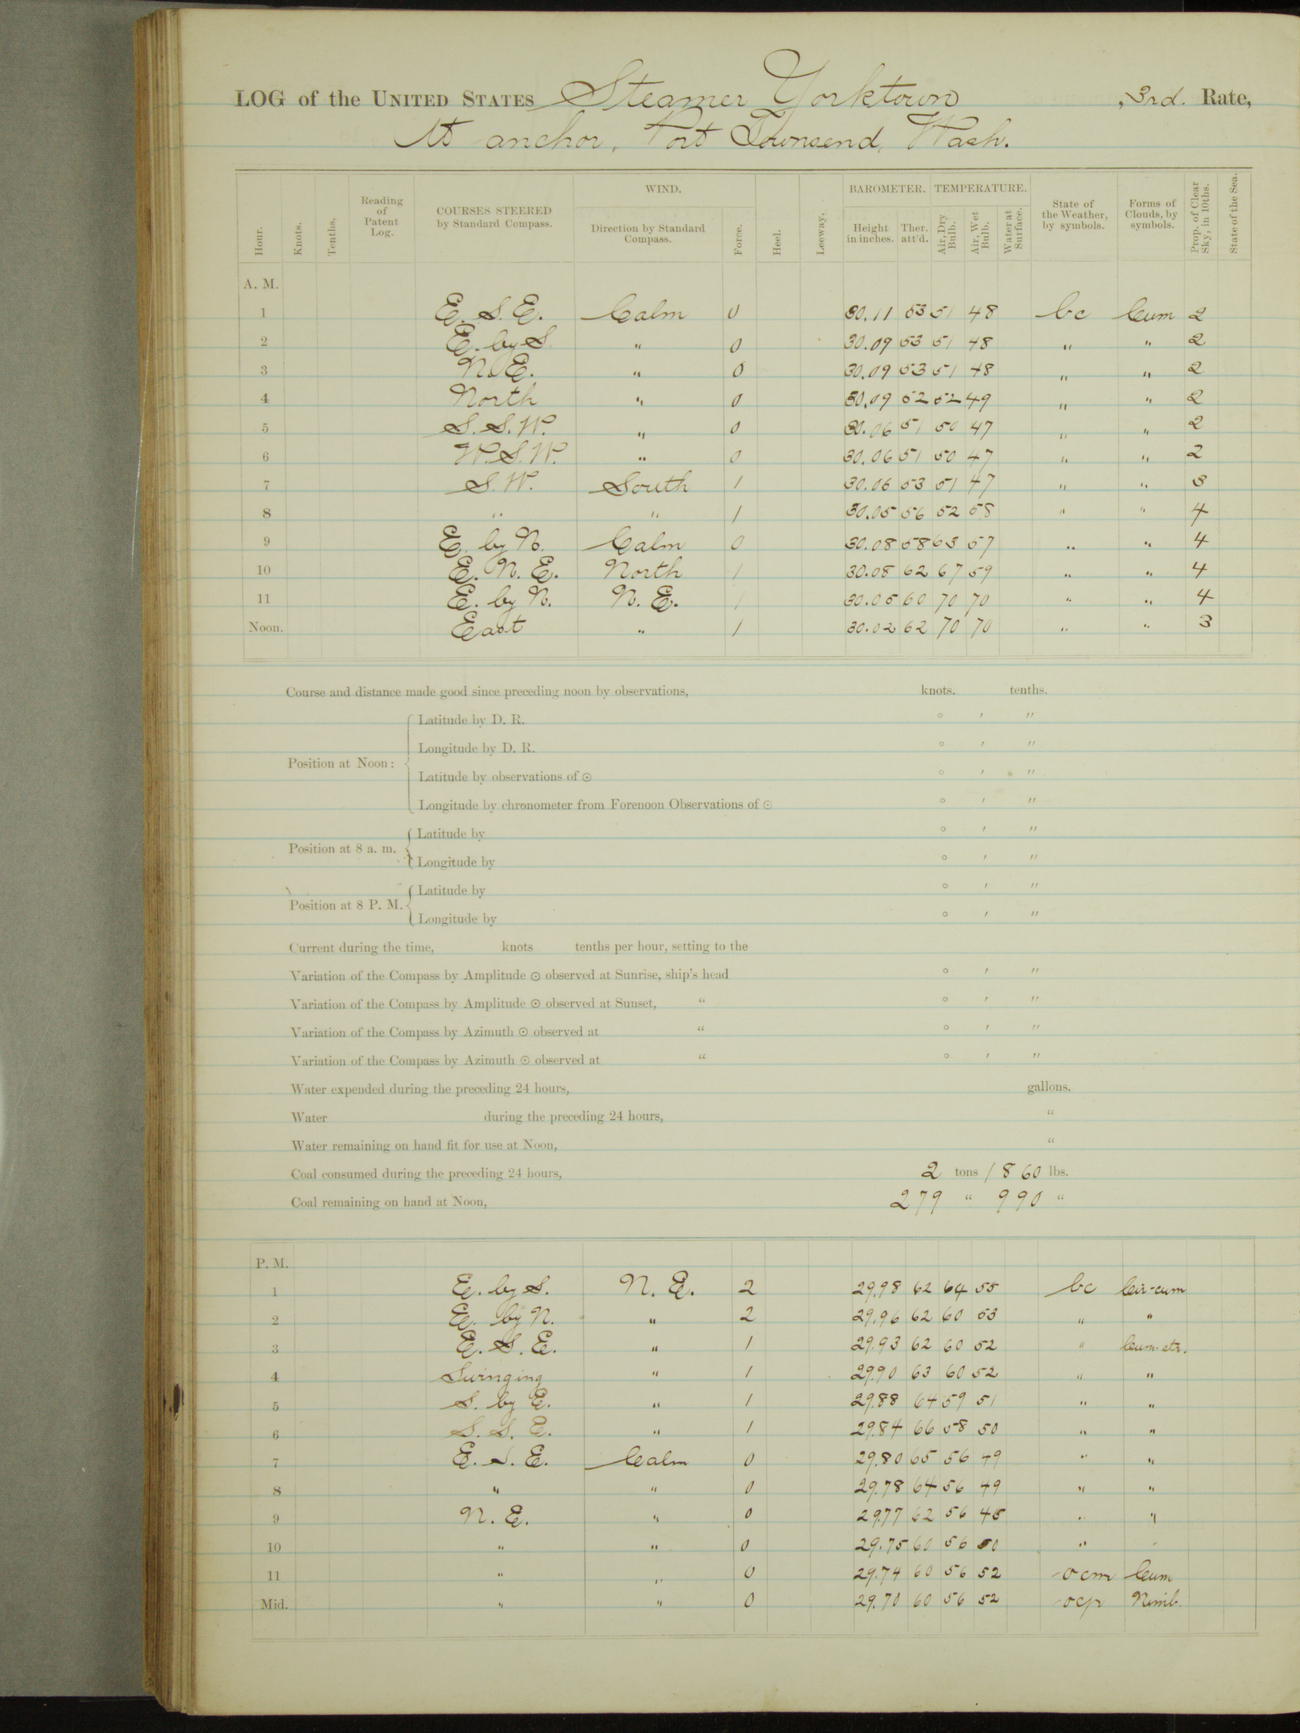 LOG of the UNITED STATES Steamer Yorktown, 3rd. Rate,
At anchor, Port Townsend, Wash.
Hour. Knots. Tenths. Reading of Patent Log. COURSES STEERED by Standard Compass. WIND. Direction by Standard Compass. Force. Heel. Leeway. BAROMETER. Height in inches. Ther. att'd. TEMPERATURE. Air, Dry Bulb. Air, Wet Bulb. Water at Surface. State of the Weather, by symbols. Forms of Clouds, by symbols. Prop. of Clear Sky, in 10ths. State of the Sea.
A. M.
1 E. S. E. Calm 0 30.11 53 51 48 bc Cum 2
2 E. by S. " 0 30.09 53 51 48 " " 2
3 N. E. " 0 30.09 53 51 48 " " 2
4 North " 0 30.09 52 52 49 " " 2
5 S. S. W. " 0 30.06 51 50 47 " " 2
6 W. S. W. " 0 30.06 51 50 47 " " 2
7 S. W. South 1 30.06 53 51 47 " " 3
8 " " 1 30.05 56 52 58 " " 4
9 E. by N. Calm 0 30.08 58 63 57 " " 4
10 E. N. E. North 1 30.08 62 67 59 " " 4
11 E. by N. N. E. 1 30.05 60 70 70 " " 4
Noon. East " 1 30.02 62 70 70 " " 3
Course and distance made good since preceding noon by observations, knots. tenths.
Position at Noon:
Latitude by D. R. ° ' "
Longitude by D. R. ° ' "
Latitude by observations of ☉ ° ' "
Longitude by chronometer from Forenoon Observations of ☉ ° ' "
Position at 8 a. m.
Latitude by ° ' "
Longitude by ° ' "
Position at 8 P. M.
Latitude by ° ' "
Longitude by ° ' "
Current during the time, knots tenths per hour, setting to the
Variation of the Compass by Amplitude ☉ observed at Sunrise, ship's head ° ' "
Variation of the Compass by Amplitude ☉ observed at Sunset, " ° ' "
Variation of the Compass by Azimuth ☉ observed at " ° ' "
Variation of the Compass by Azimuth ☉ observed at " ° ' "
Water expended during the preceding 24 hours, gallons.
Water during the preceding 24 hours, "
Water remaining on hand fit for use at Noon, "
Coal consumed during the preceding 24 hours, 2 tons 1860 lbs.
Coal remaining on hand at Noon, 279 " 990 "
P. M.
1 E. by S. N. E. 2 29.98 62 64 55 bc Cir-cum
2 E. by N. " 2 29.96 62 60 53 " "
3 E. S. E. " 1 29.93 62 60 52 " Cum-str.
4 Swinging " 1 29.90 63 60 52 " "
5 S. by E. " 1 29.88 64 59 51 " "
6 S. S. E. " 1 29.84 66 58 50 " "
7 E. S. E. Calm 0 29.80 65 56 49 " "
8 " " 0 29.78 64 56 49 " "
9 N. E. " 0 29.77 62 56 48 " "
10 " " 0 29.75 60 56 50 "
11 " " 0 29.74 60 56 52 ocm Cum
Mid. " " 0 29.70 60 56 52 ocp Nimb.